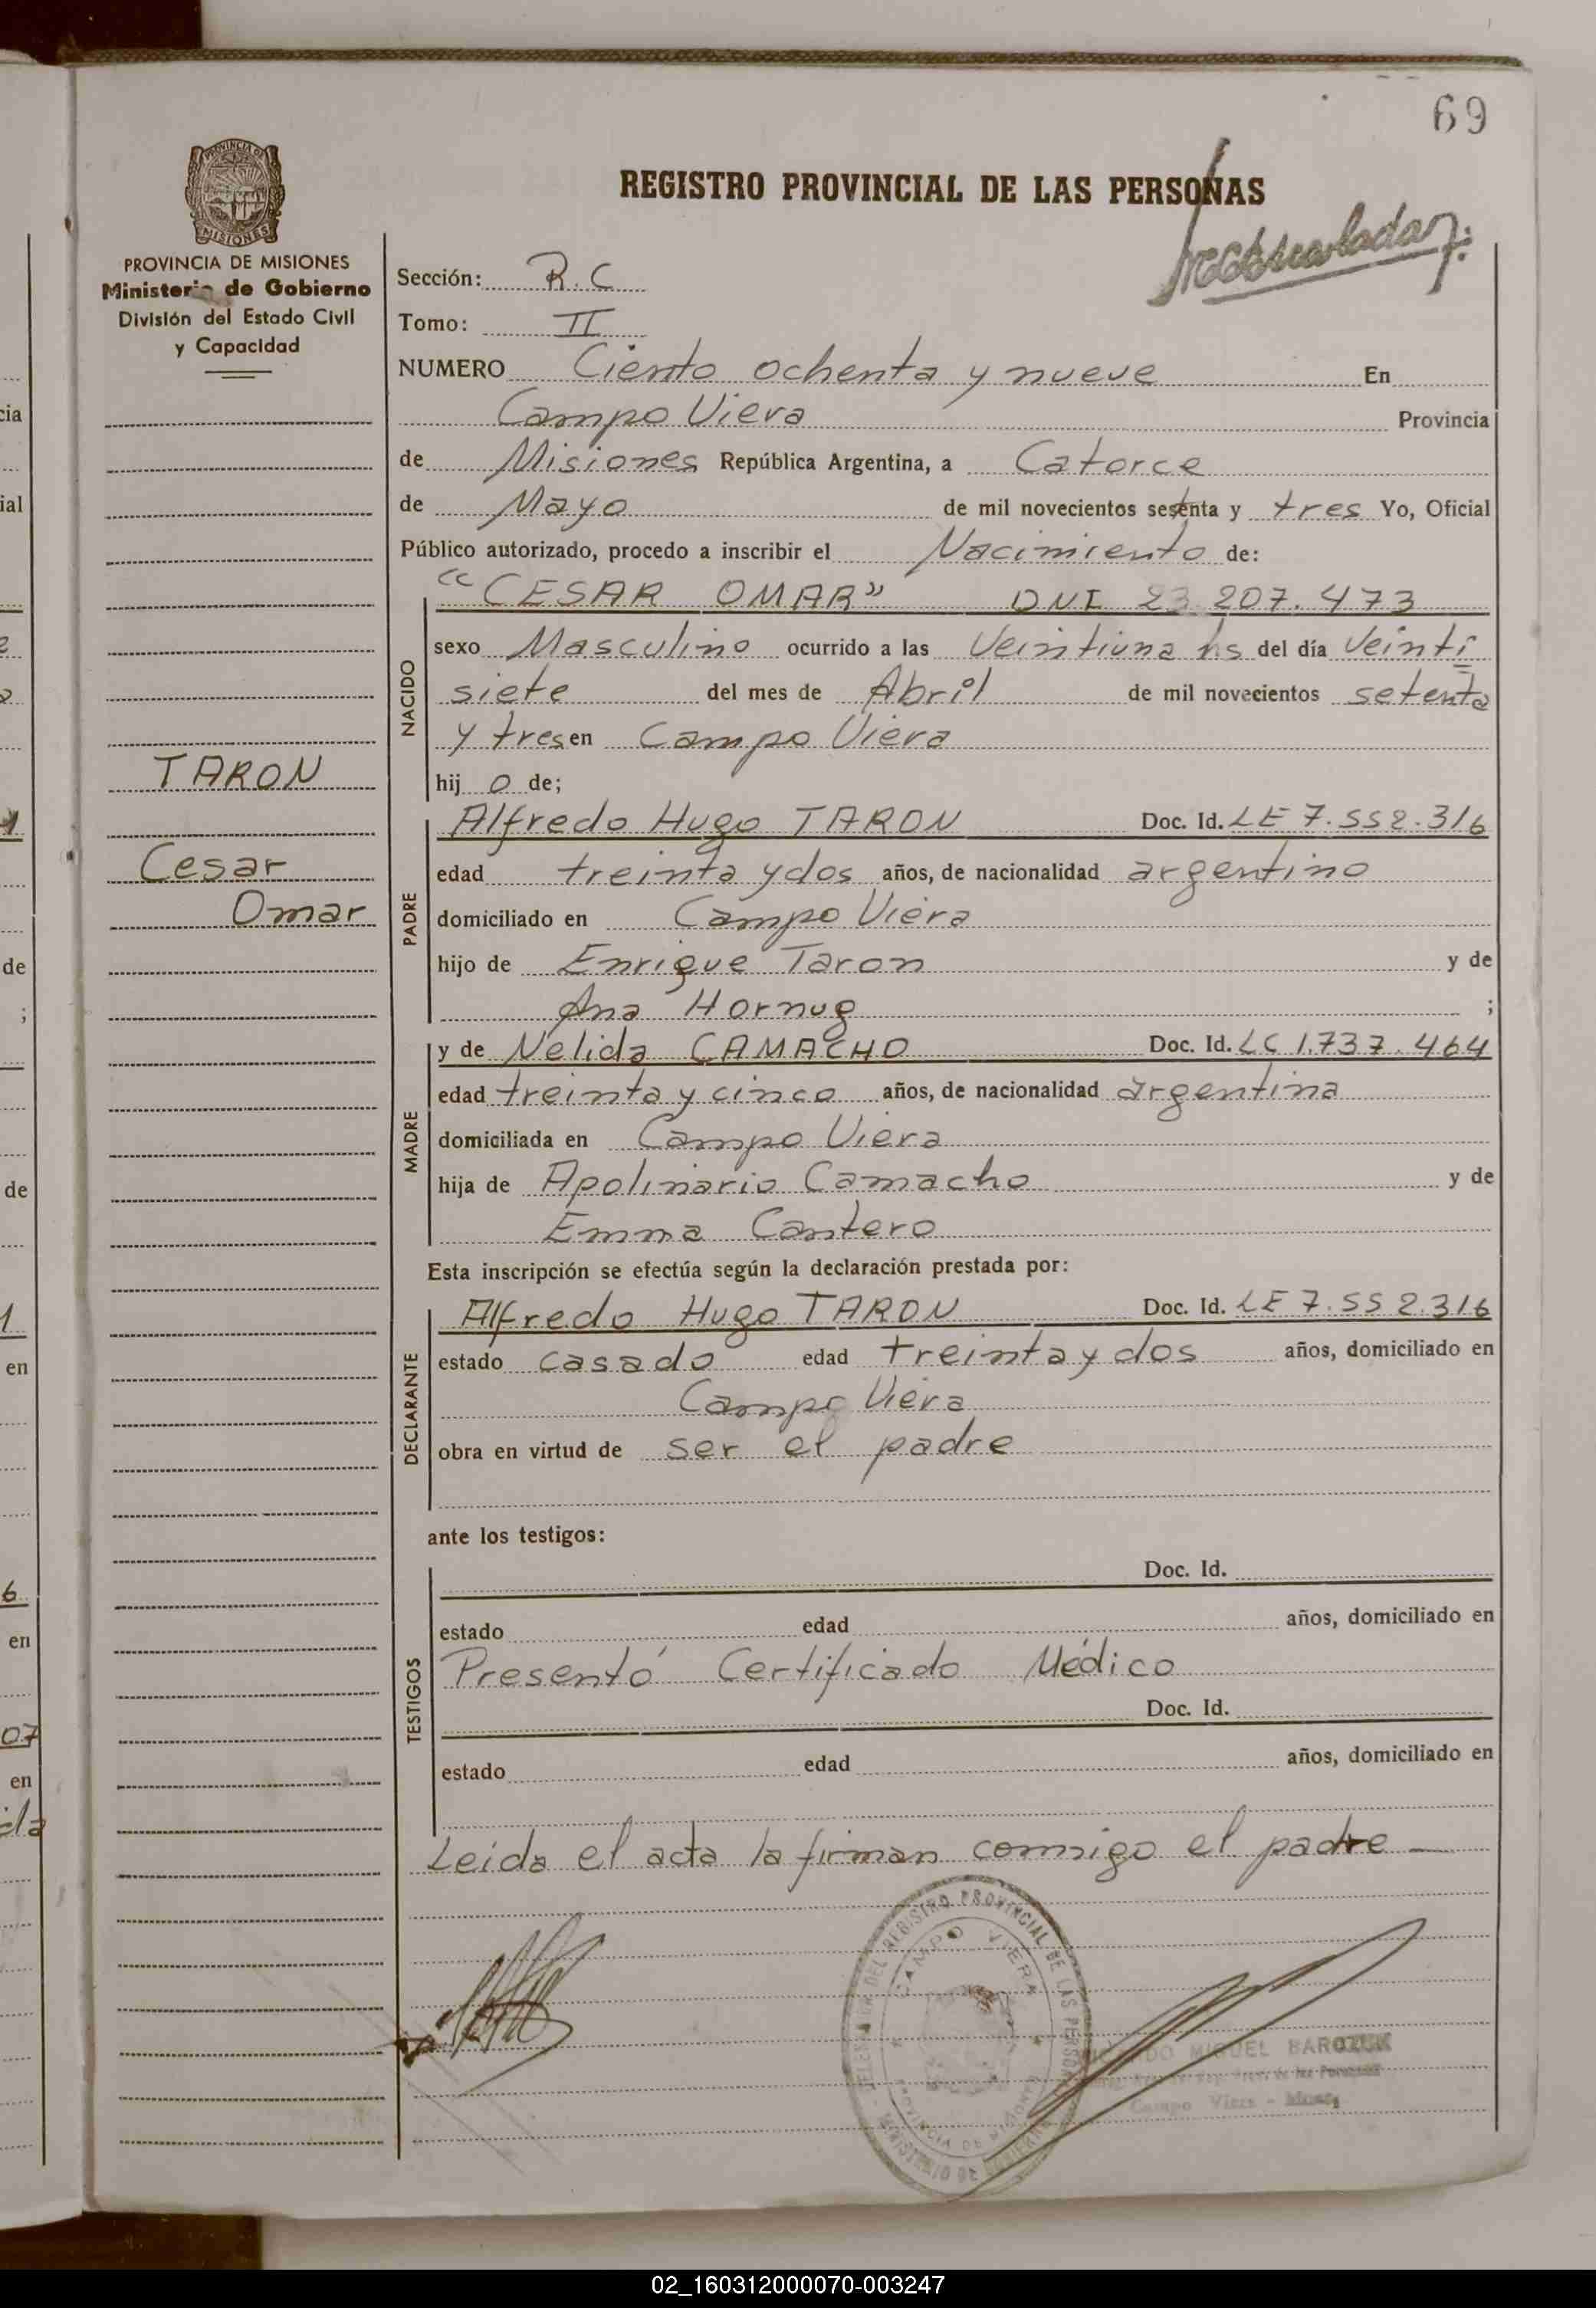 69
REGISTRO PROVINCIAL DE LAS PERSONAS
PROVINCIA DE MISIONES
Ministerio de Gobierno
División del Estado Civil
y Capacidad
TARON
Cesar
Omar
Sección: R.C
Tomo: II
NUMERO Ciento ochenta y nueve En
Campo Viera Provincia
de Misiones República Argentina, a Catorce
de Mayo de mil novecientos setenta y tres Yo, Oficial
Público autorizado, procedo a inscribir el Nacimiento de:
"CESAR OMAR" DNI 23.207.473
NACIDO
sexo Masculino ocurrido a las Veintiuna hs del día Veinti
siete del mes de Abril de mil novecientos setenta
y tres en Campo Viera
hij o de;
PADRE
Alfredo Hugo TARON Doc. Id. LE 7.552.316
edad treinta y dos años, de nacionalidad argentino
domiciliado en Campo Viera
hijo de Enrique Taron y de
Ana Hornug ;
MADRE
y de Nelida CAMACHO Doc. Id. LC 1.737.464
edad treinta y cinco años, de nacionalidad argentina
domiciliada en Campo Viera
hija de Apolinario Camacho y de
Emma Cantero
Esta inscripción se efectúa según la declaración prestada por:
DECLARANTE
Alfredo Hugo TARON Doc. Id. LE 7.552.316
estado casado edad treinta y dos años, domiciliado en
Campo Viera
obra en virtud de ser el padre
ante los testigos:
TESTIGOS
Doc. Id.
estado edad años, domiciliado en
Presentó Certificado Médico
Doc. Id.
estado edad años, domiciliado en
Leida el acta la firman conmigo el padre
DEL REGISTRO PROVINCIAL DE LAS PERSONAS
CAMPO VIERA
PROVINCIA DE MISIONES
MIGUEL
Campo Viera -
02_160312000070-003247